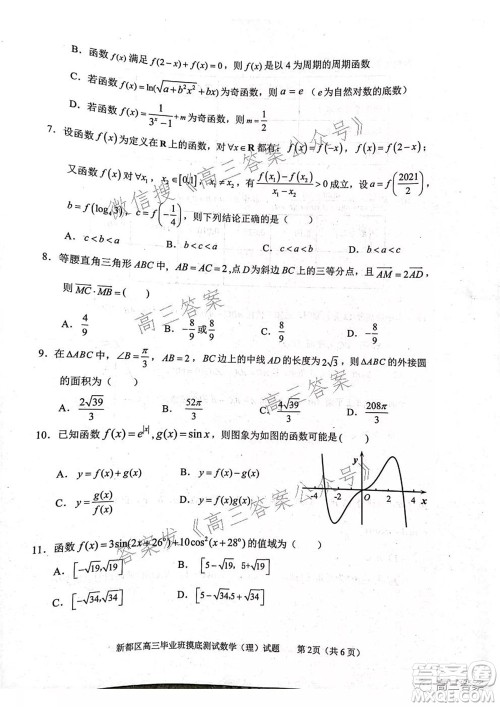 B．函数 f(x) 满足 f(2−x)+f(x)=0，则 f(x) 是以 4 为周期的周期函数
C．若函数 f(x)=ln(√(a+b²x²)+bx) 为奇函数，则 a=e（e 为自然对数的底数）
D．若函数 f(x)=1/(3ˣ−1)+m 为奇函数，则 m=1/2
7．设函数 f(x) 为定义在 R 上的函数，对 ∀x∈R 都有：f(x)=f(−x)，f(x)=f(2−x)；
又函数 f(x) 对 ∀x₁，x₂∈[0,1]，x₁≠x₂，有 (f(x₁)−f(x₂))/(x₁−x₂)>0 成立，设 a=f(2021/2)，
b=f(log₄3)，c=f(−1/4)，则下列结论正确的是（ ）
A．c<a<b B．a<b<c C．b<c<a D．c<b<a
8．等腰直角三角形 ABC 中，AB=AC=2，点 D 为斜边 BC 上的三等分点，且 AM=2AD，
则 MC·MB=（ ）
A．4/9 B．−8/9 或 8/9 C．8/9 D．−8/9
9．在 △ABC 中，∠B=π/3，AB=2，BC 边上的中线 AD 的长度为 2√3，则 △ABC 的外接圆
的面积为（ ）
A．2√39/3 B．52π/3 C．4√39/3 D．208π/3
10．已知函数 f(x)=e^|x|，g(x)=sin x，则图象为如图的函数可能是（ ）
A．y=f(x)+g(x) B．y=f(x)g(x)
C．y=g(x)/f(x) D．y=f(x)/g(x)
y
-4 -2 O 2 4 x
11．函数 f(x)=3sin(2x+26°)+10cos²(x+28°) 的值域为（ ）
A．[−√19,√19] B．[5−√19,5+√19]
C．[−√34,√34] D．[5−√34,5+√34]
新都区高三毕业班摸底测试数学（理）试题 第 2页（共 6 页）
微信搜《高三答案公众号》
高三答案
高三答案
答案发《高三答案公众号》
高三答案